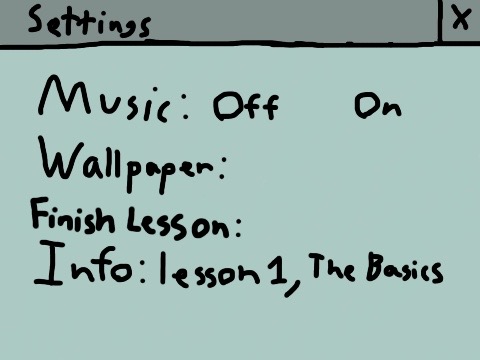 Settings X
Music: Off On
Wallpaper:
Finish Lesson:
Info: lesson 1, The Basics